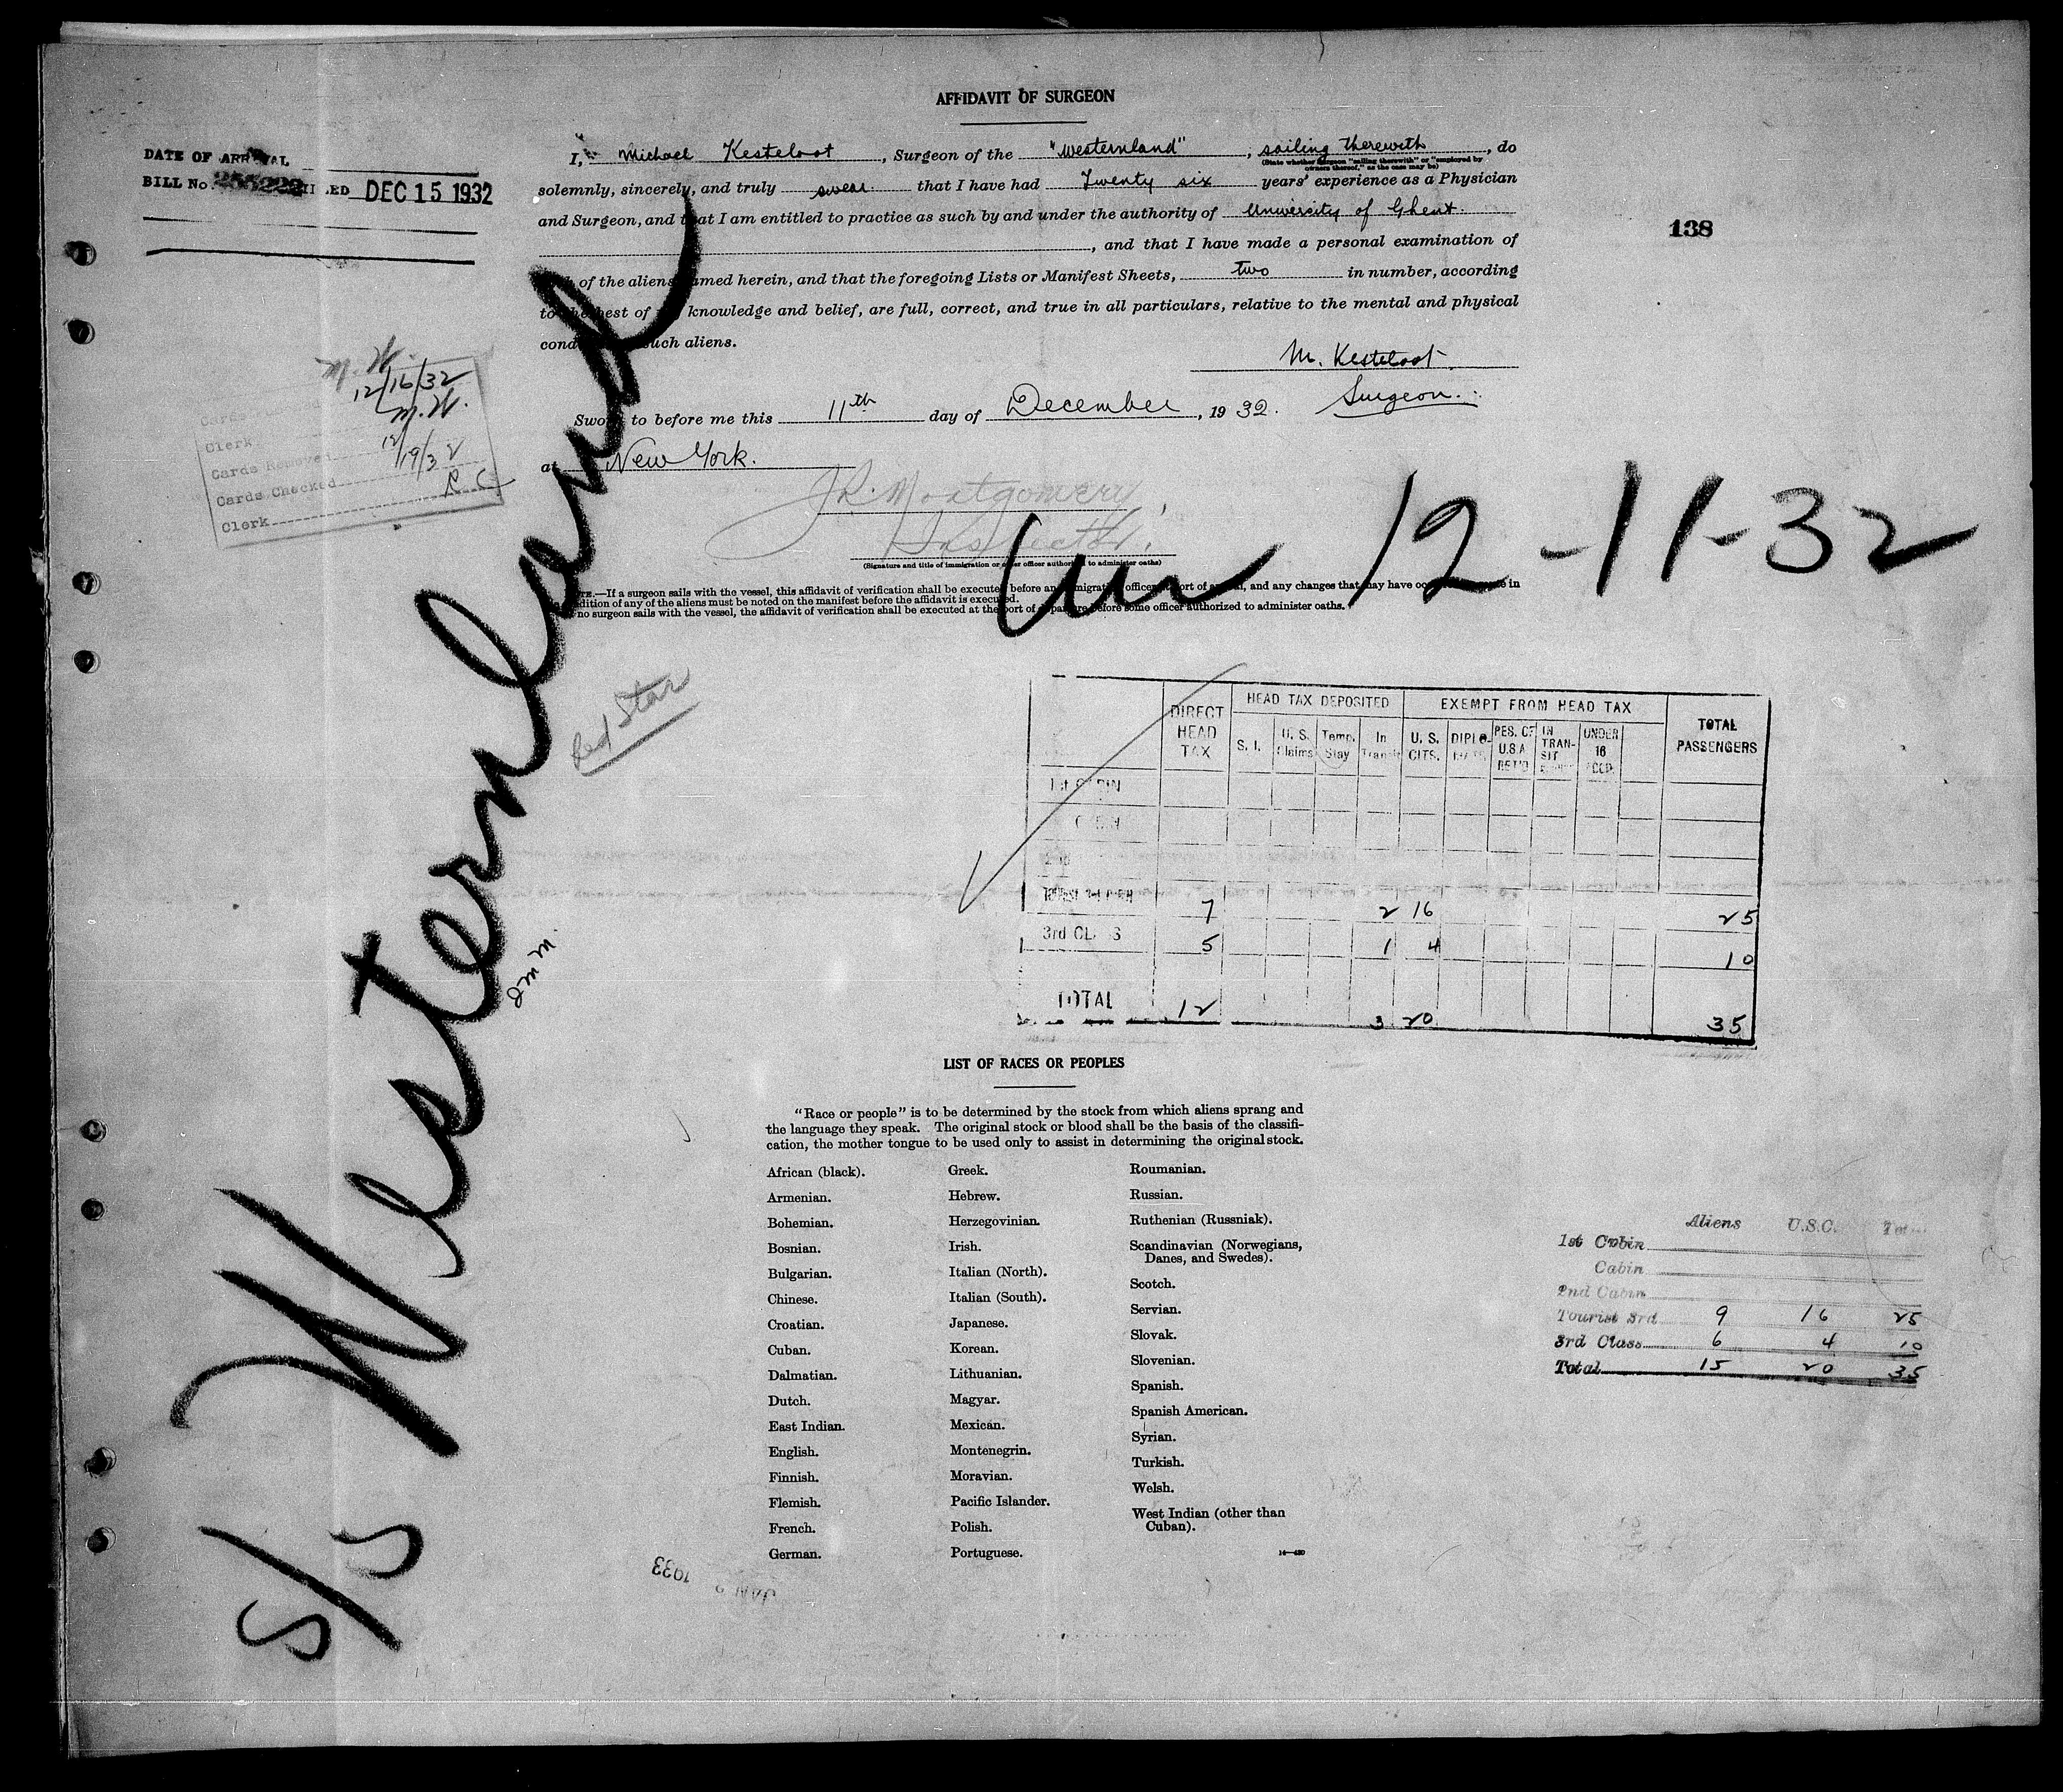 AFFIDAVIT OF SURGEON
DATE OF ARRIVAL
BILL No. DEC 15 1932
138
I, Michael Kesteloot, Surgeon of the "Westernland", sailing therewith, do
(State whether surgeon "sailing therewith" or "employed by
owners thereof," as the case may be)
solemnly, sincerely, and truly swear that I have had Twenty six years' experience as a Physician
and Surgeon, and that I am entitled to practice as such by and under the authority of University of Ghent.
, and that I have made a personal examination of
of the aliens named herein, and that the foregoing Lists or Manifest Sheets, two in number, according
to the best of my knowledge and belief, are full, correct, and true in all particulars, relative to the mental and physical
such aliens.
M. Kesteloot
Surgeon.
Sworn to before me this 11th day of December, 1932.
at New York.
J R. Montgomery
Inspector.
(Signature and title of immigration or other officer authorized to administer oaths)
NOTE.—If a surgeon sails with the vessel, this affidavit of verification shall be executed before an immigration officer port of arrival, and any changes that may have in
condition of any of the aliens must be noted on the manifest before the affidavit is executed.
no surgeon sails with the vessel, the affidavit of verification shall be executed at the port of departure before some officer authorized to administer oaths.
M. W.
12/16/32
M. W.
Clerk
Cards Removed 12/19/32
Cards Checked R C
Clerk
S/S Westernland
12-11-32
Red Star
DIRECT HEAD TAX
HEAD TAX DEPOSITED
EXEMPT FROM HEAD TAX
TOTAL PASSENGERS
S. I. U. S. Claims Temp. Stay In Transit U. S. CITS. RES. OF U.S.A. RET'D IN TRANSIT UNDER 16 ACCP.
7 2 16 25
3rd CLASS 5 1 4 10
TOTAL 12 3 20 35
LIST OF RACES OR PEOPLES
"Race or people" is to be determined by the stock from which aliens sprang and
the language they speak. The original stock or blood shall be the basis of the classifi-
cation, the mother tongue to be used only to assist in determining the original stock.
African (black).
Armenian.
Bohemian.
Bosnian.
Bulgarian.
Chinese.
Croatian.
Cuban.
Dalmatian.
Dutch.
East Indian.
English.
Finnish.
Flemish.
French.
German.
Greek.
Hebrew.
Herzegovinian.
Irish.
Italian (North).
Italian (South).
Japanese.
Korean.
Lithuanian.
Magyar.
Mexican.
Montenegrin.
Moravian.
Pacific Islander.
Polish.
Portuguese.
Roumanian.
Russian.
Ruthenian (Russniak).
Scandinavian (Norwegians,
Danes, and Swedes).
Scotch.
Servian.
Slovak.
Slovenian.
Spanish.
Spanish American.
Syrian.
Turkish.
Welsh.
West Indian (other than
Cuban).
Aliens U.S.C.
1st Cabin
Cabin
2nd Cabin
Tourist 3rd 9 16 25
3rd Class 6 4 10
Total 15 20 35
1933